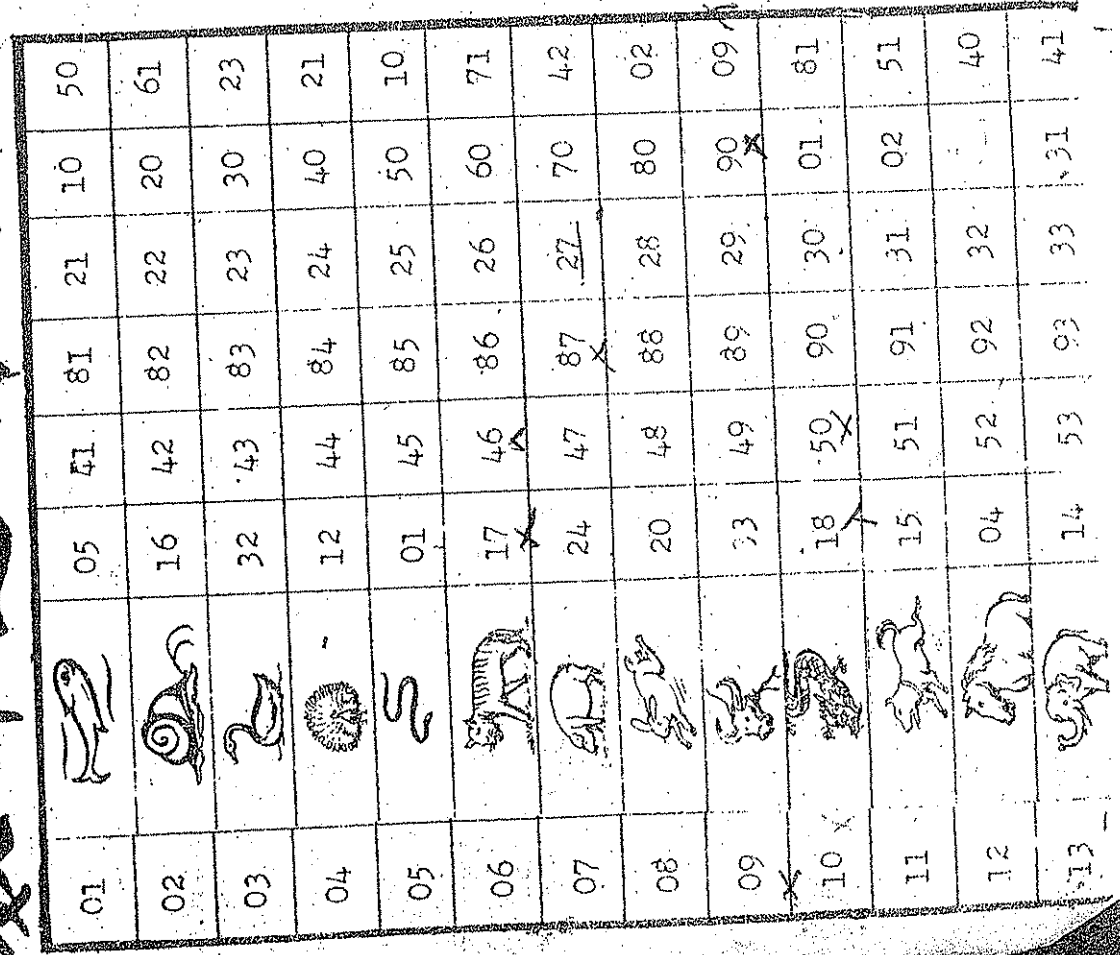 01 05 41 81 21 10 50
02 16 42 82 22 20 61
03 32 43 83 23 30 23
04 12 44 84 24 40 21
05 01 45 85 25 50 10
06 17 46 86 26 60 71
07 24 47 87 27 70 42
08 20 48 88 28 80 02
09 33 49 89 29 90 09
10 18 50 90 30 01 81
11 15 51 91 31 02 51
12 04 52 92 32 40
13 14 53 93 33 31 41